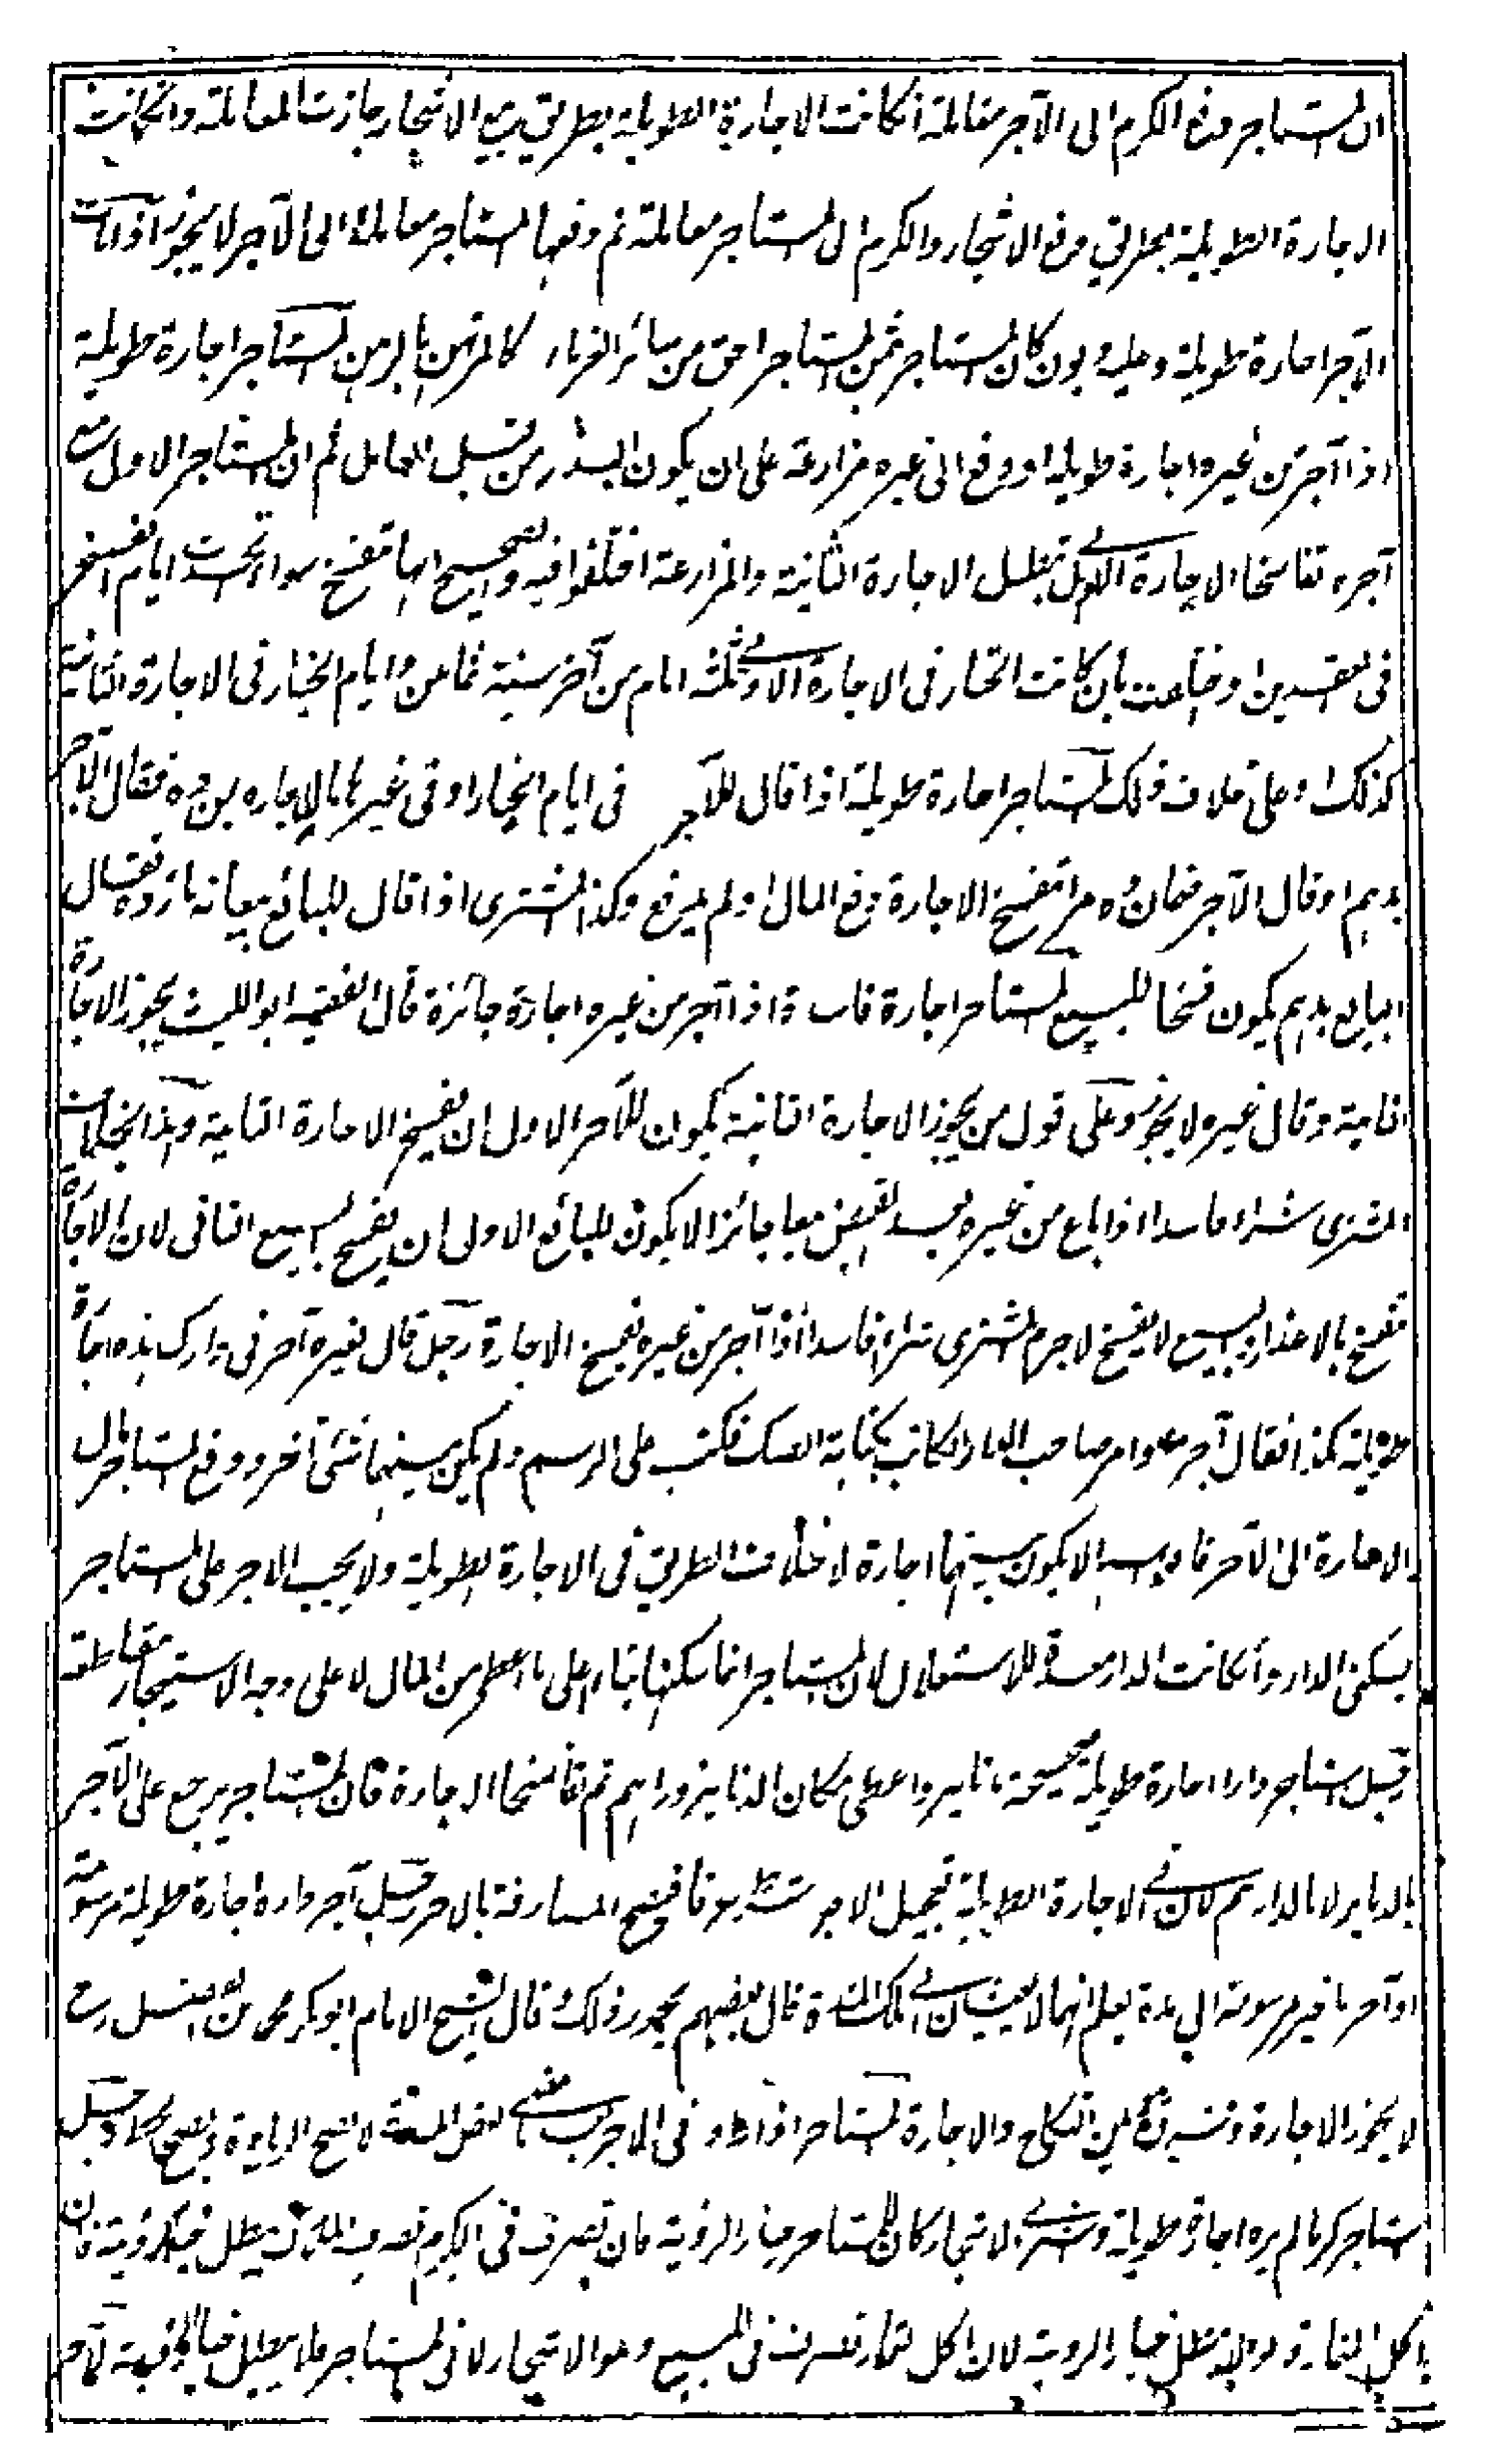 ان المستاجر دفع الكرم الى الآجر معاملة ان كانت الاجارة الطويلة بطريق بيع الاشجار جازت المعاملة وان كانت
الاجارة الطويلة بطريق دفع الاشجار والكرم الى المستاجر معاملة ثم دفعها المستاجر معاملة الى الآجر لا يجوز اذا مات
الآجر اجارة طويلة وعليه ديون كان المستاجر بثمن المستاجر احق من سائر الغرماء كالمرتهن بالرهن المستاجر اجارة طويلة
اذا آجر من غيره اجارة طويلة او دفع الى غيره مزارعة على ان يكون البذر من قبل العامل ثم ان المستاجر الاول مع
آجره تفاسخا الاجارة الاولى هل تبطل الاجارة الثانية والمزارعة اختلفوا فيه والصحيح انها تنفسخ سواء اتحدت ايام الفسخ
فى العقدين او اختلفت بان كانت الخيار فى الاجارة الاولى ثلثة ايام من آخر سنة ثمامن و ايام الخيار فى الاجارة الثانية
كذلك او على خلاف ذلك المستاجر اجارة طويلة اذا قال للآجر فى ايام الخيار او فى غيرها مال اجاره بمن ده فقال الآجر
بدهم او قال الآجر ده تنفسخ الاجارة دفع المال او لم يدفع وكذا المشترى اذا قال للبائع بازده فقال
البايع بدهم يكون فسخا للبيع المستاجر اجارة فاسدة اذا آجر من غيره اجارة جائزة قال الفقيه ابو الليث يجوز الاجارة
الثانية وقال غيره لا يجوز وعلى قول من يجوز الاجارة الثانية يكون للآجر الاول ان يفسخ الاجارة الثانية وهذا بخلاف
المشترى شراء فاسدا اذا باع من غيره بعد القبض بيعا جائزا لا يكون للبائع الاول ان يفسخ البيع الثانى لان الاجارة
تفسخ بالاعذار والبيع لا يفسخ لا جرم المشترى شراء فاسدا اذا آجر من غيره تفسخ الاجارة رجل قال لغيره آجرنى دارك هذه اجارة
طويلة بكذا فقال آجرت وامر صاحب الدار الكاتب بكتابة الصك فكتب على الرسم ولم يكن بينهما شئ آخر ودفع المستاجر مال
الاجارة الى الآجر قالوا لا يكون بينهما اجارة لاختلاف الطريق فى الاجارة الطويلة ولا يجب الاجر على المستاجر
بسكنى الدار وان كانت الدار معدة للاستغلال لان المستاجر انما سكنها بناء على ما اعطى من المال لا على وجه الاستيجار مقاطعة
رجل استاجر دارا اجارة طويلة صحيحة بدنانير واعطى مكان الدنانير دراهم ثم تفاسخا الاجارة فان المستاجر يرجع على الآجر
بالدنانير لا بالدراهم لان فى الاجارة الطويلة تعجيل الاجر شرط عرفا فصح المصارفة بالاجر رجل آجر داره اجارة طويلة مرسومة
او آجرها غير مرسومة الى مدة يعلم انهما لا يعيشان الى تلك المدة قال بعضهم يجوز ذلك وقال الشيخ الامام ابو بكر محمد بن الفضل رح
لا يجوز الاجارة وفرق بين النكاح والاجارة المستاجر اذا زاد فى الاجر بعد ما مضى بعض المدة لا تصح الزيادة ويصح الحط رجل
استاجر كرما لم يره اجارة طويلة وشرى الاشجار كان للمستاجر خيار الرؤية فان تصرف فى الكرم تصرف الملاك يبطل خيار الرؤية فان
اكل الثمار لا يبطل خيار الروية لان اكل الثمار تصرف فى المبيع وهو الاشجار لا فى المستاجر فلا يبطل خيار الرؤية الآجر